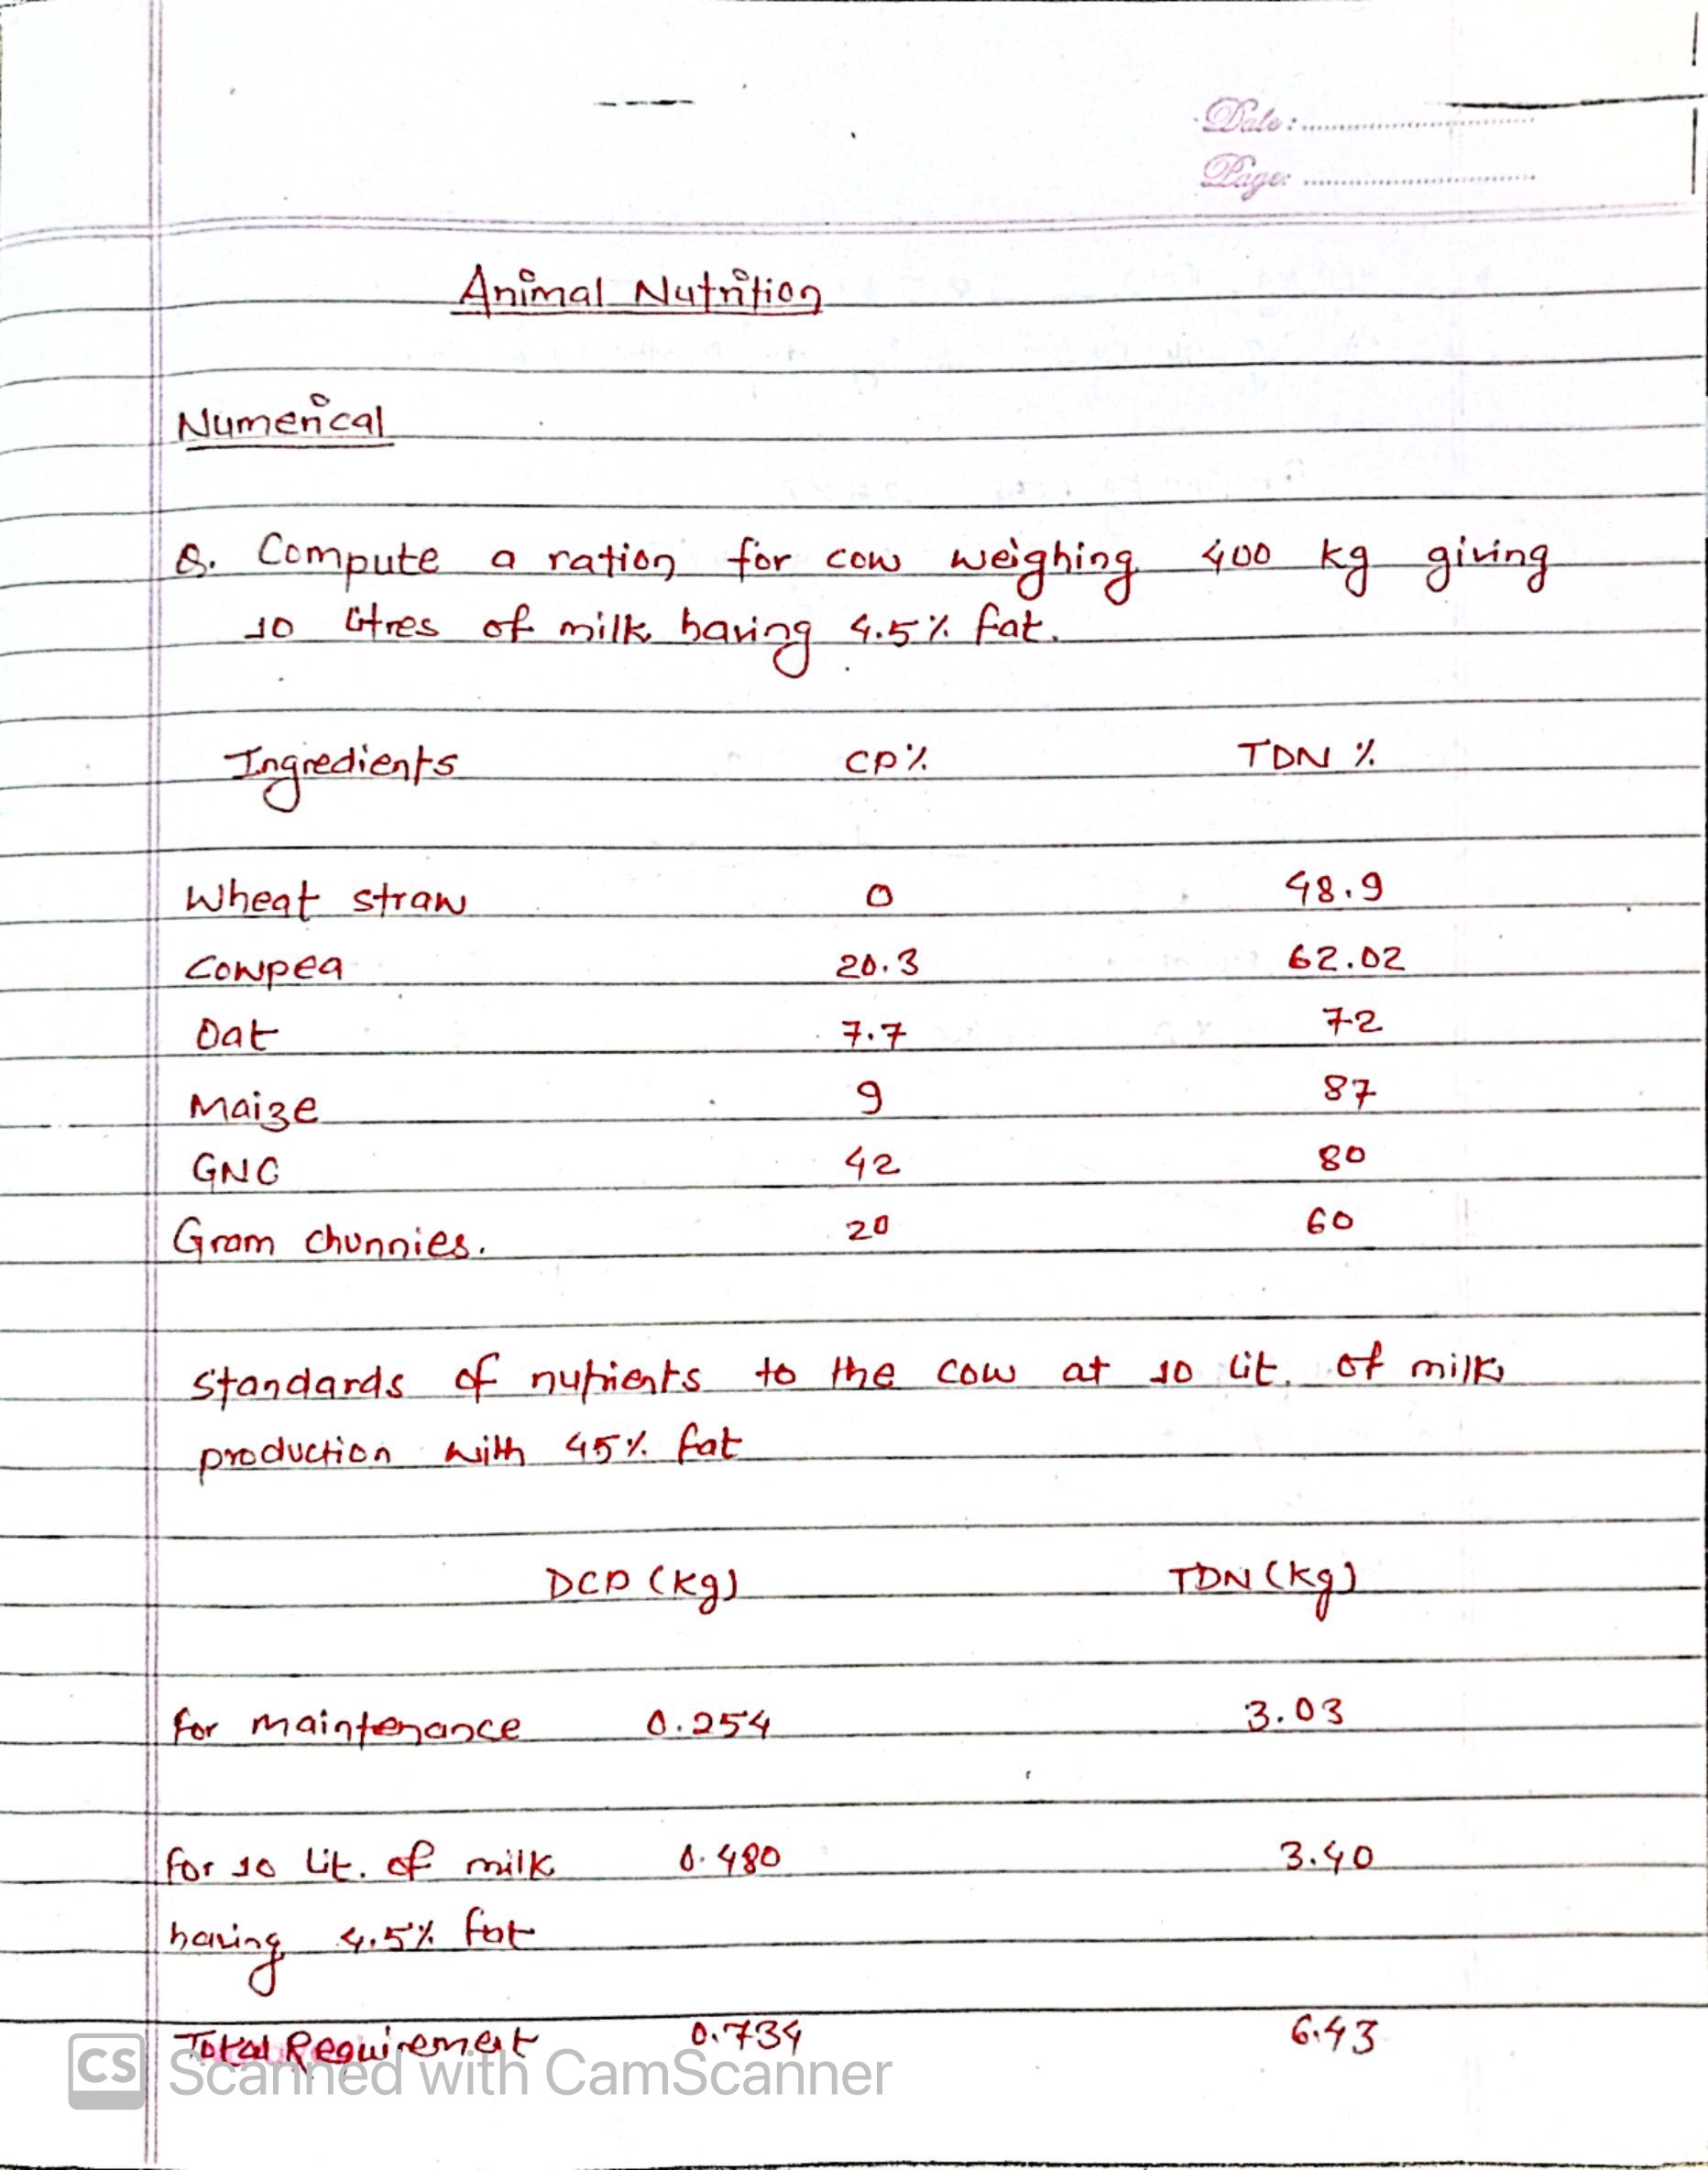 Date :
Page:
Animal Nutrition
Numerical
Q. Compute a ration for cow weighing 400 kg giving
10 litres of milk having 4.5% fat.
Ingredients CP% TDN %
Wheat straw 0 48.9
Cowpea 20.3 62.02
Oat 7.7 72
Maize 9 87
GNC 42 80
Gram chunnies. 20 60
Standards of nutrients to the cow at 10 lit. of milk
production with 45% fat
DCP (kg) TDN (kg)
for maintenance 0.254 3.03
for 10 lit. of milk 0.480 3.40
having 4.5% fat
Total Requirement 0.734 6.43
CS Scanned with CamScanner